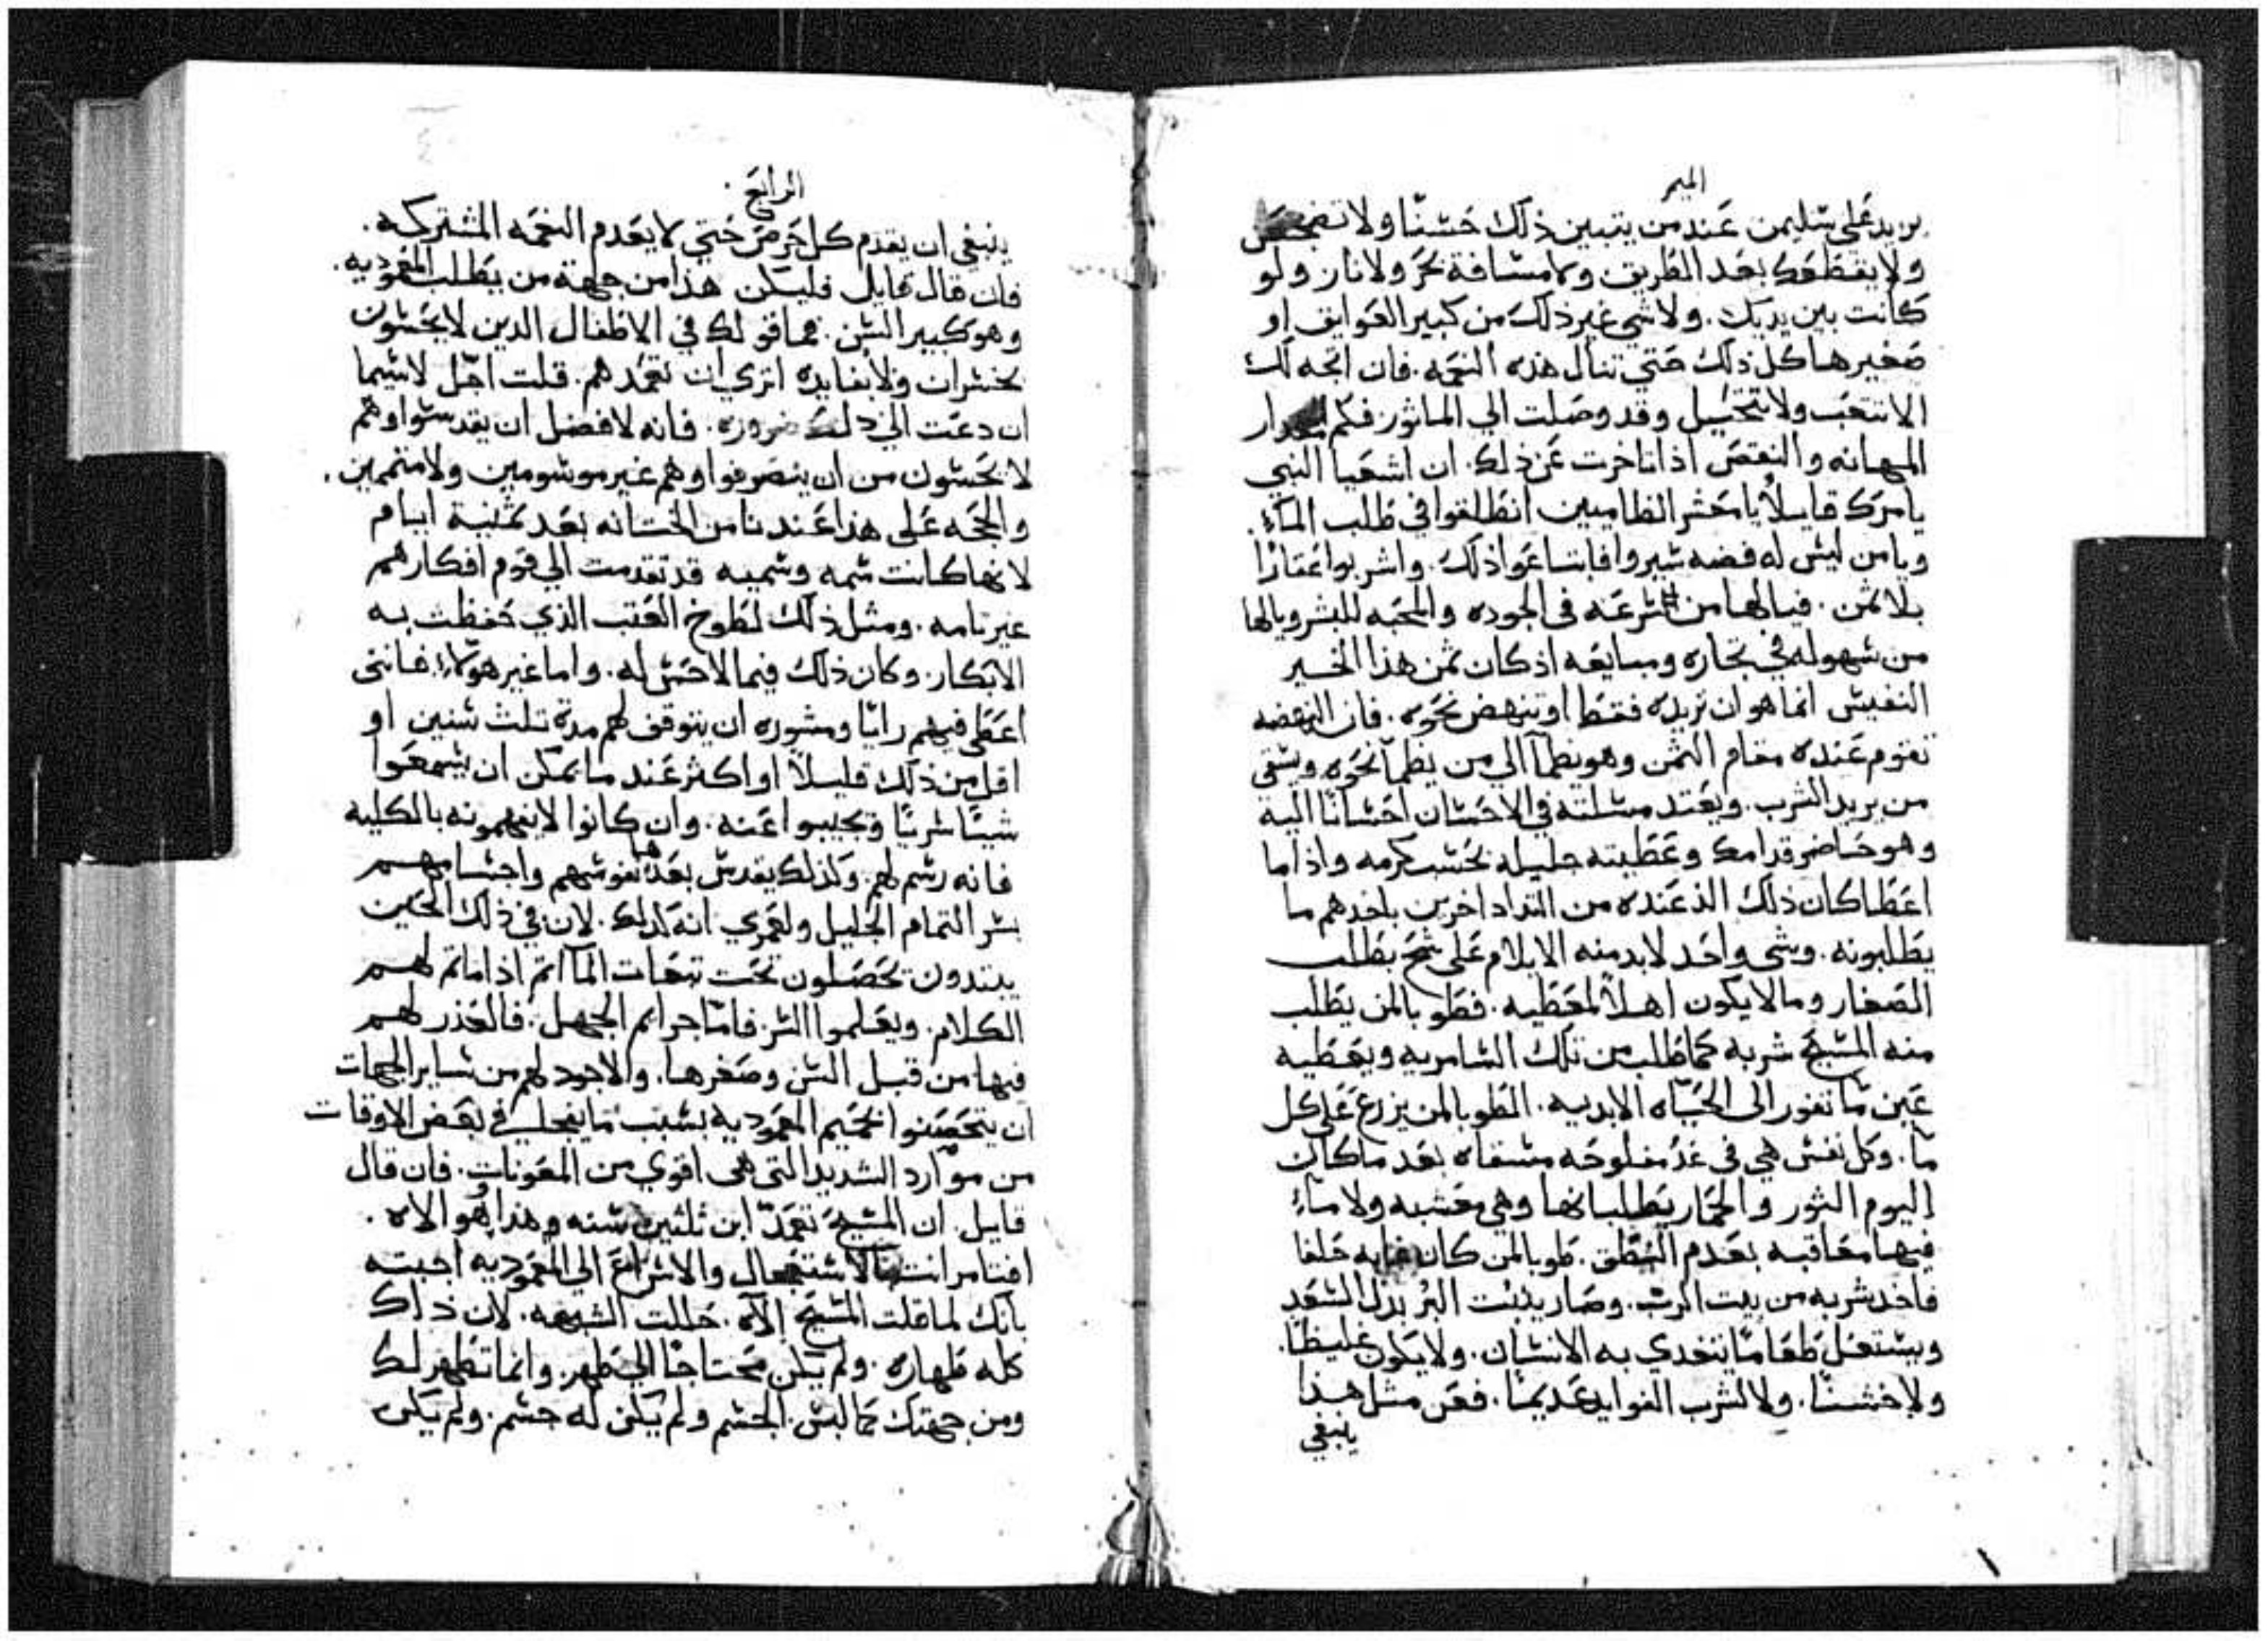 الميمر
يريد على سليمن عند من يتبين ذلك حسنا ولا تفحص
ولا يقطعك بعد الطريق ولا مسافة بحر ولا نار ولو
كانت بين يديك. ولا شي غير ذلك من كبير العوايق او
صغيرها كل ذلك حتي تنال هذه النعمه. فان اتجه لك
الا تتعب ولا تتخيل وقد وصلت الي الماثور فكم مقدار
المهانه والنقص اذا تاخرت عن ذلك. ان اشعيا النبي
يامرك قايلاً يا معشر الظاميين انطلقوا في طلب الماء.
ويا من ليس له فضه سيروا فابتاعوا ذلك. واشربوا عقارًا
بلا ثمن. فيا لها من سرعه في الجوده والمحبه للبشر ويا لها
من سهوله في تجاره ومبايعه اذ كان ثمن هذا الخير
النفيس انما هو ان تريده فقط او تنهض نحوه. فان النهضه
تقوم عنده مقام الثمن وهو يظمآ الي من يظمآ نحوه ويسقي
من يريد الشرب. ويعتد مسلته في الاحسان احسانًا اليه
وهو حاضر قدامك وعطيته جليله بحسب كرمه واذا ما
اعطا كان ذلك الذ عنده من التداد اخرين باخدهم ما
يطلبونه. وشي واحد لابد منه الا يلام على شح بطلب
الصغار وما لا يكون اهلاً لمعطيه. فطوبا لمن يطلب
منه المسيح شربه كما طلب من تلك السامريه ويعطيه
عين ما تفور الى الحياه الابديه. الطوبا لمن يزرع على كل
ما. وكل نفس هي في غد مفلوحه مسقاه بعد ما كان
اليوم الثور والحمار يطلبانها وهي معشبه ولا ماء
فيها معاقبه بعدم النطق. طوبا لمن كان حلفا
فاخد شربه من بيت الرب. وصار ينبت البر بدل السعد
ويستعمل طعامًا يتغدي به الانسان. ولا يكون غليظا.
ولا خشنًا. ولا لشرب الفوايد عديمًا. فعن مثل هذا
ينبغي
الرابع
ينبغي ان يقدم كل حرص حتي لا يعدم النعمه المشتركه.
فان قال قايل فليكن هذا من جهة من يطلب المعموديه.
وهو كبير السن. فما قولك في الاطفال الدين لا يحسون
بخسران ولا بفايده اتري ان نعمدهم. قلت اجل لاسيما
ان دعت الي ذلك ضروره. فانه لافضل ان يقدسوا وهم
لا يحسون من ان ينصرفوا وهم غير موسومين ولا متممين.
والحجه على هذا عندنا من الختانه بعد ثمنية ايام
لانها كانت سمه وسميه قد تقدمت الي قوم افكارهم
غير تامه. ومثل ذلك لطوخ العتب الذي حفظت به
الابكار. وكان ذلك فيما لا حس له. واما غير هولاء فانني
اعطي فيهم رايًا ومشوره ان يتوقف لهم مدة تلث سنين او
اقل من ذلك قليلاً او اكثر عند ما يمكن ان يسمعوا
شيئًا سريًا ويجيبوا عنه. وان كانوا لا يفهمونه بالكليه
فانه رسم لهم. وكذلك يقدس بعدها نفوسهم واجسامهم
بسر التمام الجليل ولعمري انه لذلك. لان في ذلك الحين
يبتدون يحصلون تحت تبعات الماآتم اذا ما تم لهم
الكلام. ويعلموا السر. فاما جرايم الجهل. فالعذر لهم
فيها من قبل السن وصغرها. والاجود لهم من ساير الجهات
ان يتحصنوا بحميم المعموديه بسبب ما يفجا في بعض الاوقات
من موارد الشديد التي هي اقوي من المعونات. فان قال
قايل. ان المسيح تعمد ابن ثلثين سنه وهذا وهو الاه.
افيامر انت بالاستعجال والاسراع الي المعموديه اجبته
بانك لما قلت المسيح الآه. حللت الشبهه. لان ذاك
كله طهاره. ولم يكن محتاجًا الي طهر. وانما تطهر لك
ومن جهتك كما لبس الجسم ولم يكن له جسم. ولم يكن